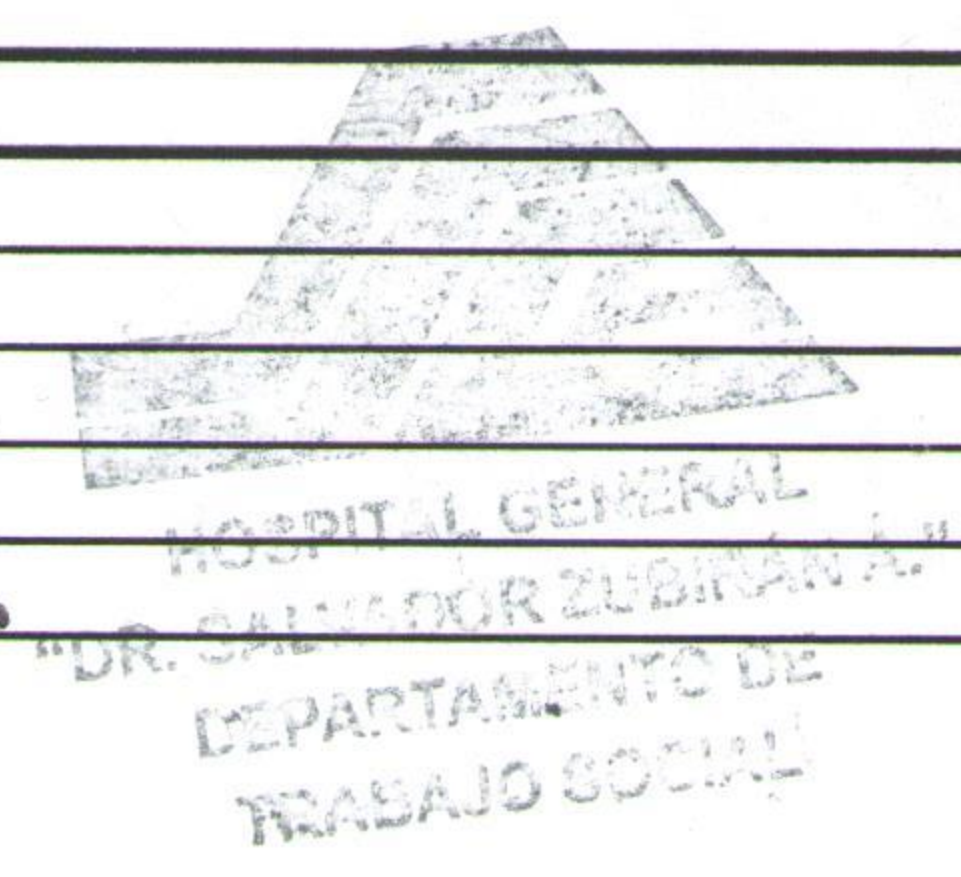 HOSPITAL GENERAL
"DR. SALVADOR ZUBIRÁN A."
DEPARTAMENTO DE
TRABAJO SOCIAL